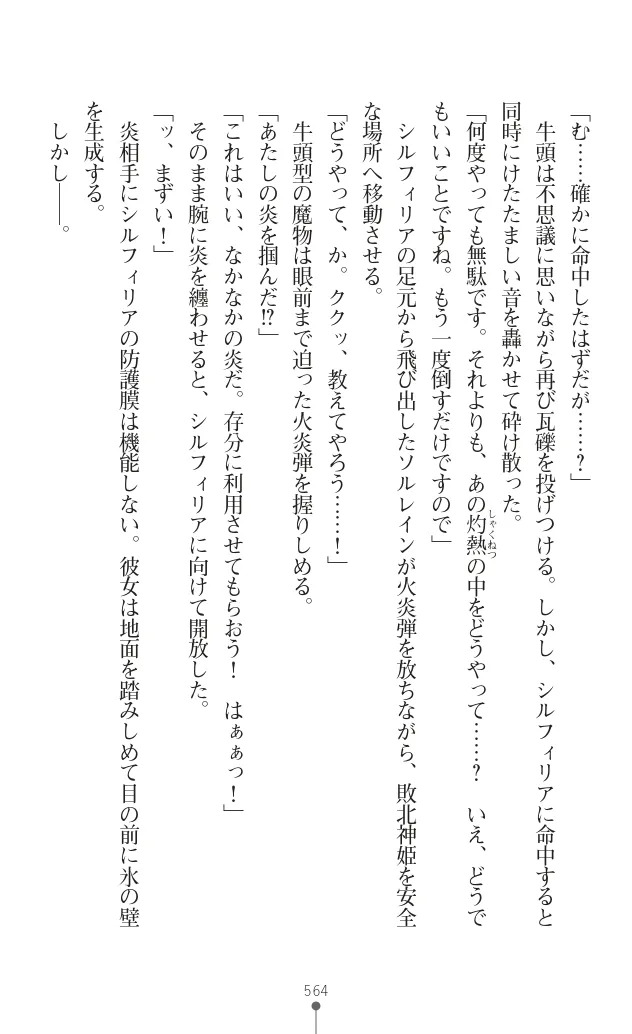 「む……確かに命中したはずだが……？」
　牛頭は不思議に思いながら再び瓦礫を投げつける。しかし、シルフィリアに命中すると
同時にけたたましい音を轟かせて砕け散った。
「何度やっても無駄です。それよりも、あの灼熱の中をどうやって……？　いえ、どうで
しゃくねつ
もいいことですね。もう一度倒すだけですので」
　シルフィリアの足元から飛び出したソルレインが火炎弾を放ちながら、敗北神姫を安全
な場所へ移動させる。
「どうやって、か。ククッ、教えてやろう……！」
　牛頭型の魔物は眼前まで迫った火炎弾を握りしめる。
「あたしの炎を掴んだ!?」
「これはいい、なかなかの炎だ。存分に利用させてもらおう！　はぁぁっ！」
　そのまま腕に炎を纏わせると、シルフィリアに向けて開放した。
「ッ、まずい！」
　炎相手にシルフィリアの防護膜は機能しない。彼女は地面を踏みしめて目の前に氷の壁
を生成する。
　しかし――。
564